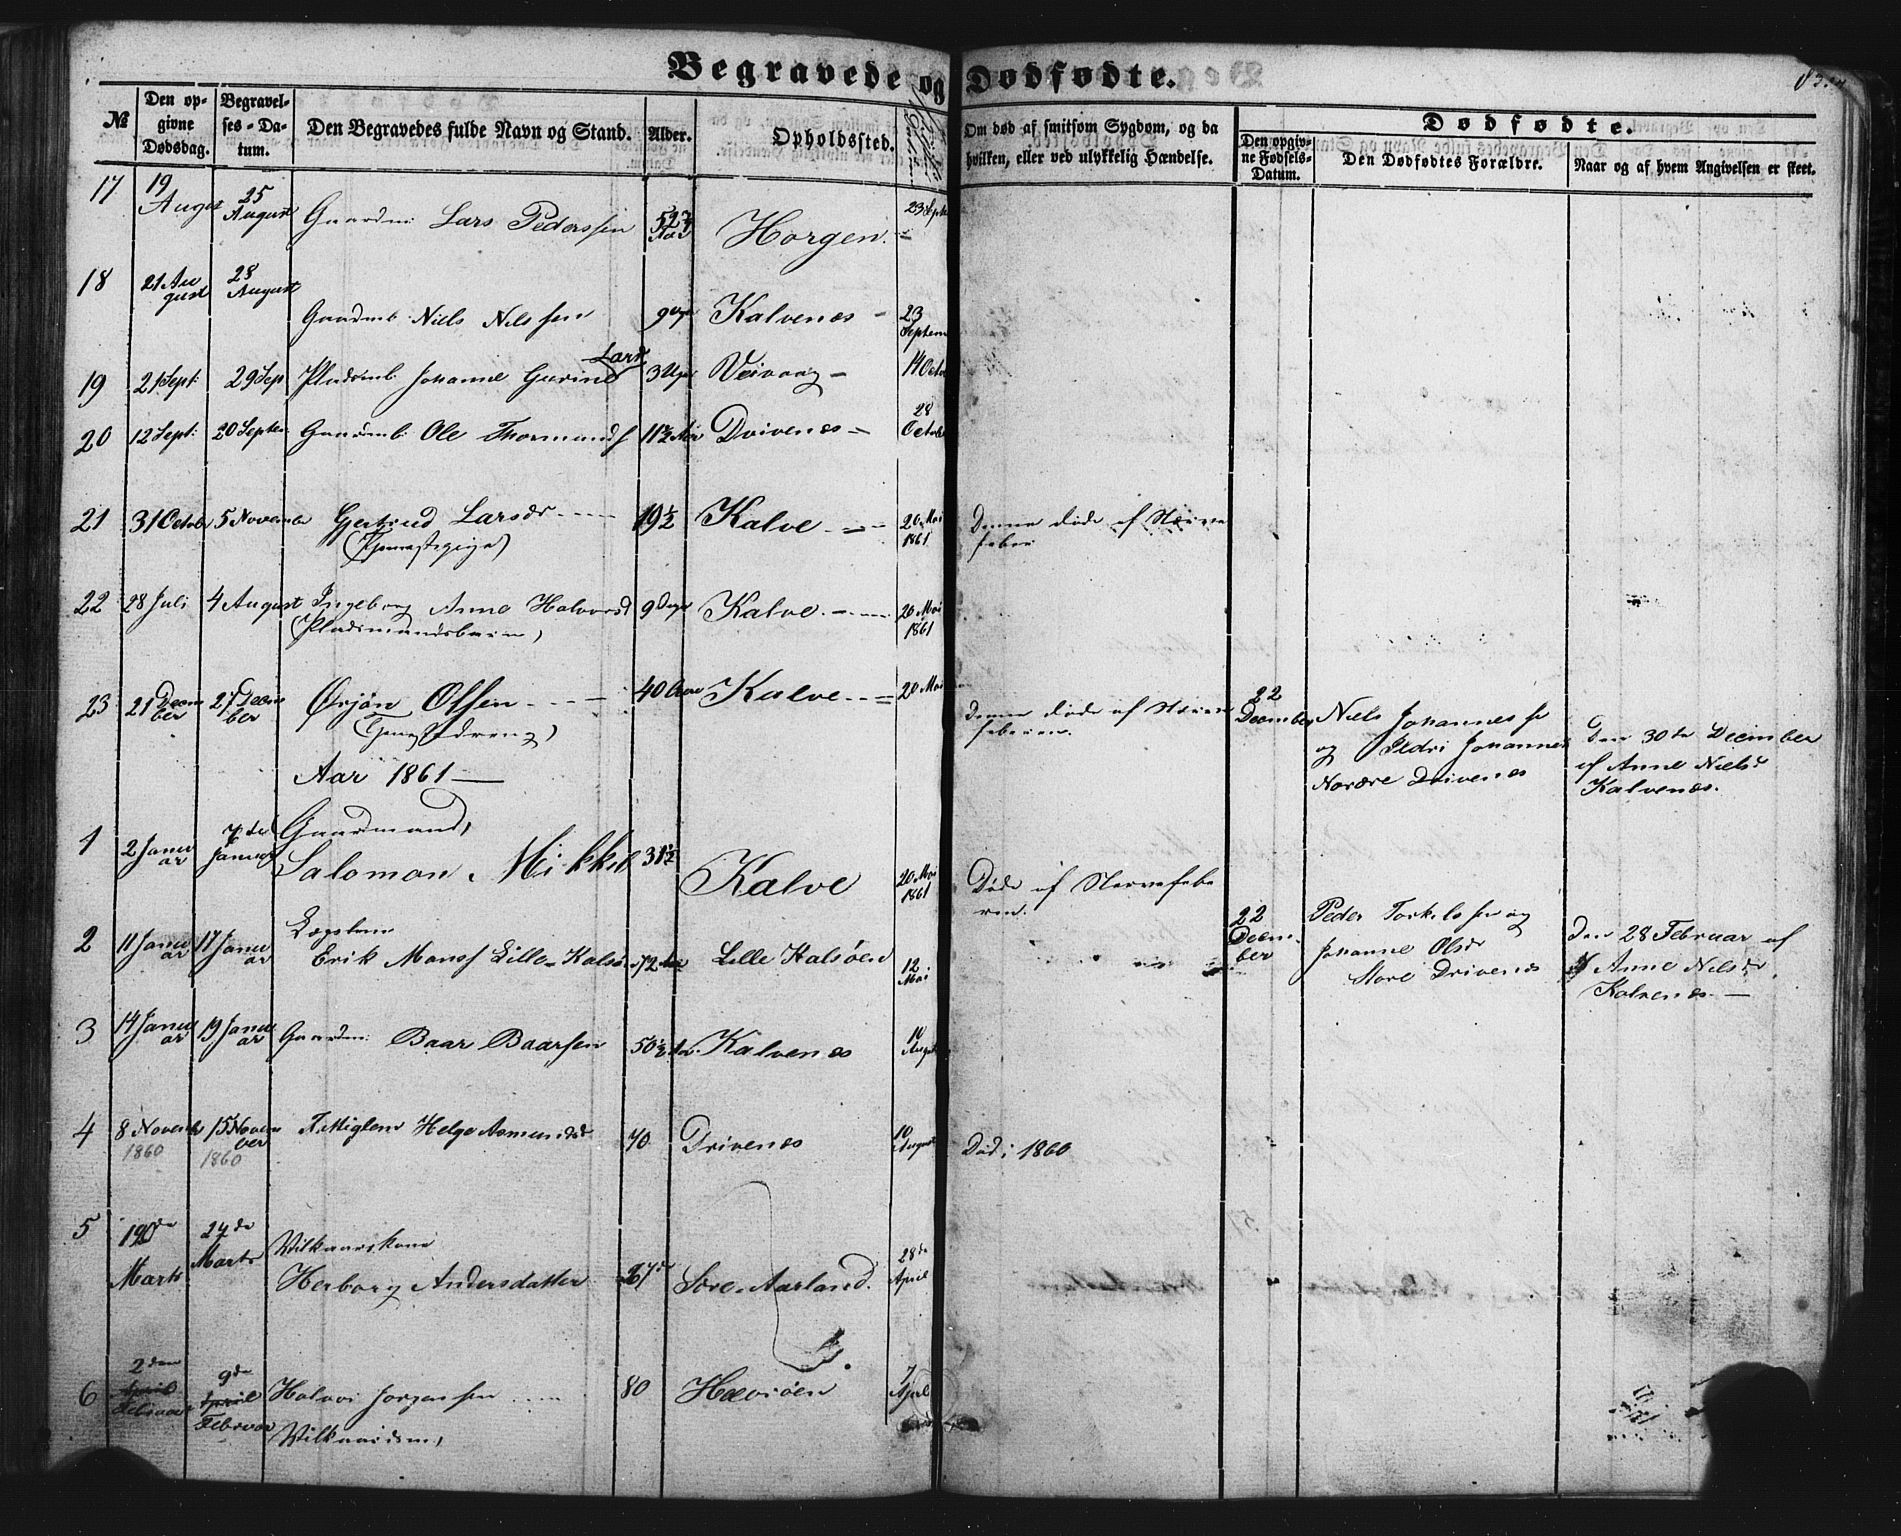 Begravede og Dødfødte.
№
Den op-
givne
Dødsdag.
Begravel-
ses-Da-
tum.
Den Begravedes fulde Navn og Stand.
Alder.
Opholdssted.
Om død af smitsom Sygdom, og da
hvilken, eller ved ulykkelig Hændelse.
Dødfødte.
Den opgiv-
ne Fødsels-
Datum.
Den Dødfødtes Forældre.
Naar og af hvem Angivelsen er skeet.
17 19 August 25 August Gaardm: Lars Pederssen Horgen. 23 Septe
18 21 August 28 August Gaardmb: Niels Nilssen 9 Kalvenæs 23 Septem
19 21 Sept: 29 Sep Pladsmb: Johanne Gurine Larsd 3 Uger Veivaag 14 Octo
20 12 Sept: 20 Septem Gaardmb: Ole Thormunds 11½ Aar Drivenæs 28 Octob
21 31 Octob 5 Novemb Gjertrud Larsdr 19½ Kalve 20 Mai 1861 Denne døde af Nerve
(Tjenestepige) feber
22 28 Juli 4 August Ingeborg Anna Halvorsd 9 Dage Kalve 20 Mai 1861
(Pladsmandsbarn)
23 21 December 27 December Ørjan Olssen 40 Aar Kalve 20 Mai Denne døde af Nerve
(Tjenestedreng) feberen.
22 December Niels Johannesse
og Pedri Johannes
Nordre Drivenæs
Den 30te December
af Anne Nielsd
Kalvenæs.
Aar 1861
1 2 Januar 7de Januar Gaardmand,
Salomon Mikkels 31½ Kalve 20 Mai 1861 Døde af Nervefebe
ren.
2 11 Januar 17 Januar Lægslem
Erik Monss Lille-Kalsø 72 Aar Lille Kalsøen 12 Mai
22 December Peder Torkelssen og
Johanne Olsdr
Store Drivenæs
Den 28 Februar af
Anne Nilsdr
Kalvenæs.
3 14 Januar 19 Januar Gaardm: Baar Baarsen 50½ Aar Kalvenæs 10 August
4 8 Novemb 1860 15 November 1860 Fattiglem Helge Asmundsdr 70 Drivenæs 10 August Død i 1860
5 19de Marts 24de Marts Vilkaarskone
Herborg Andersdatter 67 Søre-Aarland. 28de April
6 2den April Februar 9de April Februar Halvor Jørgenssen 80 Hævrøen 7 April
Vilkaarsm,